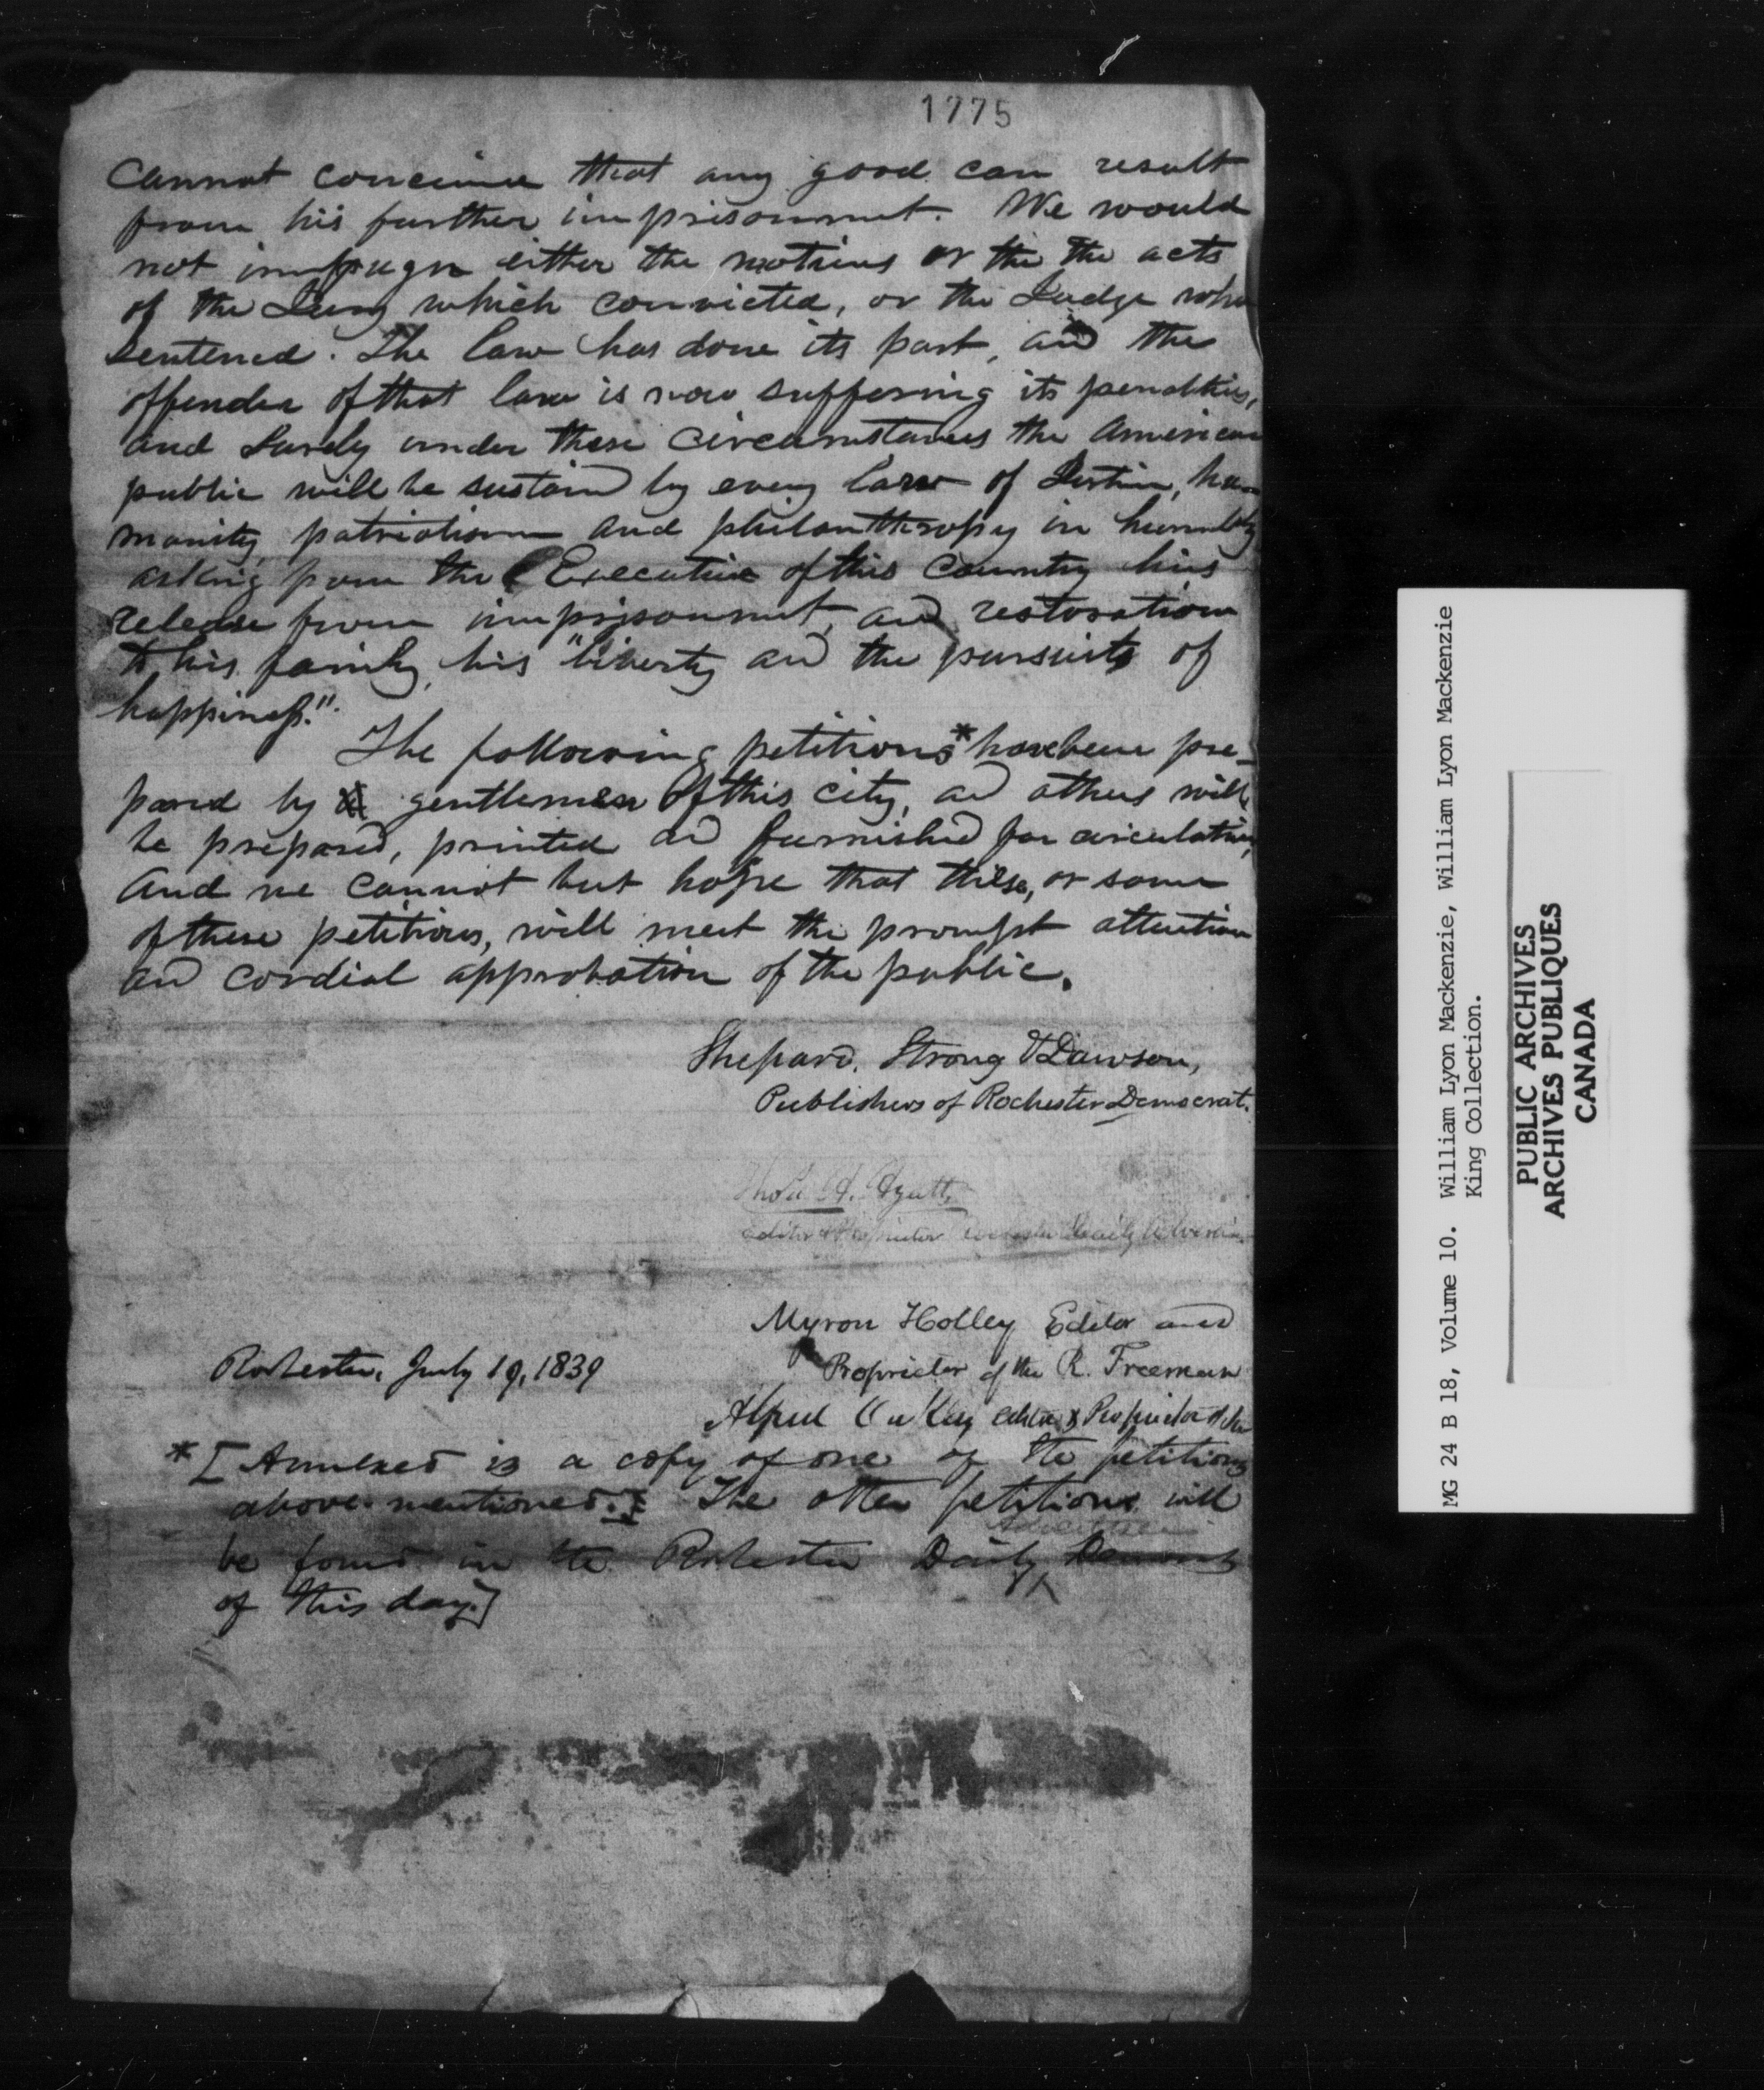 1775
Cannot conceive that any good can result
from his further imprisonment. We would
not impugn either the motives or the the acts
of the Jury which convicted, or the Judge who
sentenced. The law has done its part, and the
offender of that law is now suffering its penalties,
and surely under these circumstances the American
public will be sustained by every law of Justice, hu-
manity, patriotism and philanthropy in humbly
asking from the Executive of this Country his
release from imprisonment, and restoration
to his family, his "liberty and the pursuits of
happiness."
The following petitions* have been pre-
pared by gentlemen of this city, and others will
be prepared, printed and furnished for circulation,
and we cannot but hope that these, or some
of these petitions, will meet the prompt attention
and cordial approbation of the public.
Shepard, Strong & Dawson,
Publishers of Rochester Democrat.
A. Hyatt,
Editor & Proprietor Rochester Daily Advertiser
Myron Holley Editor and
Proprietor of the R. Freeman
Rochester, July 19, 1839
Alfred Editor & Proprietor of the
* [Annexed is a copy of one of the petitions
above mentioned. The other petitions will
Advertiser
be found in the Rochester Daily Democrat
of this day.]
MG 24 B 18, Volume 10. William Lyon Mackenzie, William Lyon Mackenzie
King Collection.
PUBLIC ARCHIVES
ARCHIVES PUBLIQUES
CANADA